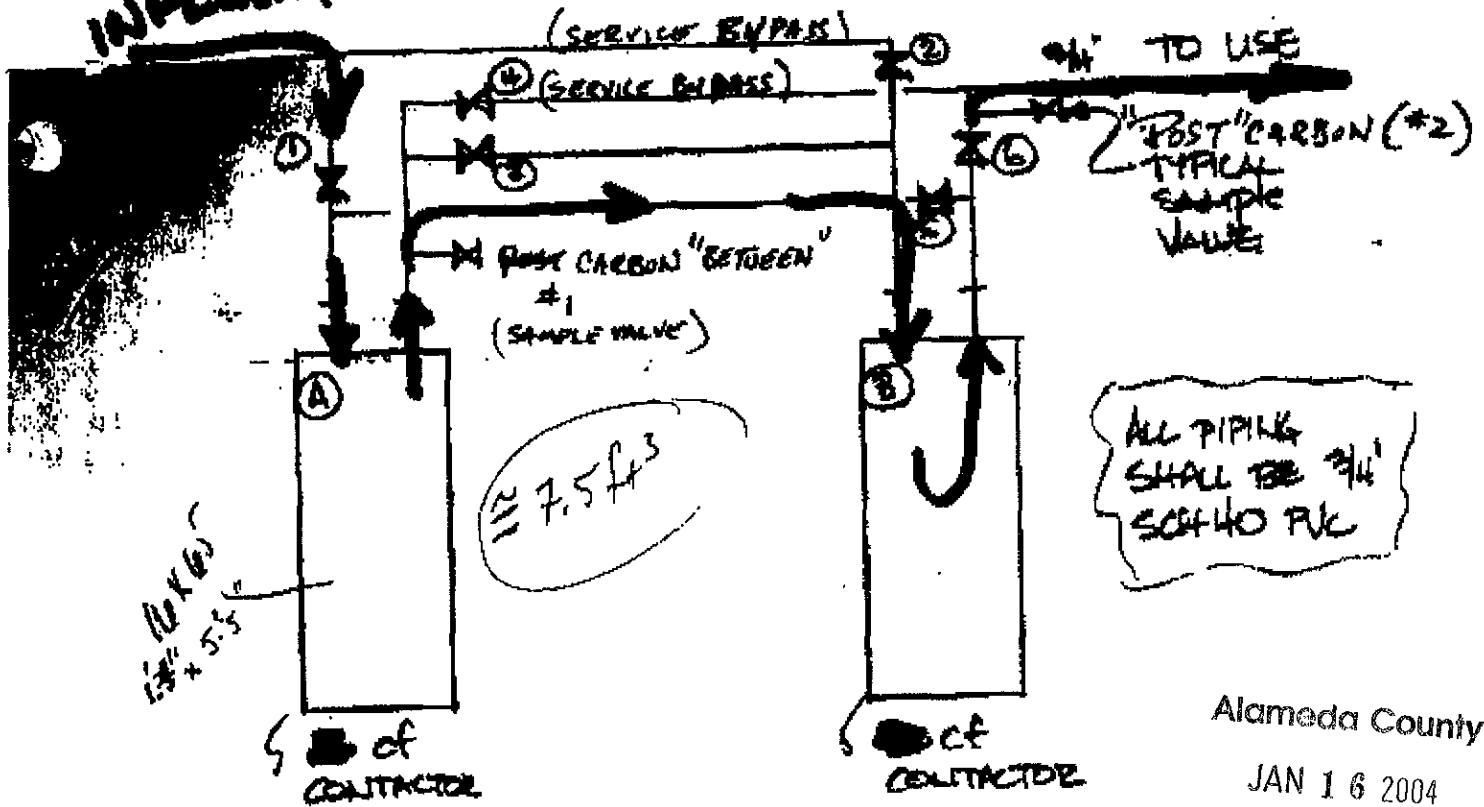 (SERVICE BYPASS)
②
3/4" TO USE
④ (SERVICE BYPASS)
①
③
⑥
"POST" CARBON (#2)
TYPICAL
SAMPLE
VALVE
POST CARBON "BETWEEN"
#1
(SAMPLE VALVE)
Ⓐ
Ⓑ
≅ 7.5 ft³
ALL PIPING
SHALL BE 3/4"
SCH 40 PVC
cf
CONTACTOR
cf
CONTACTOR
Alameda County
JAN 16 2004